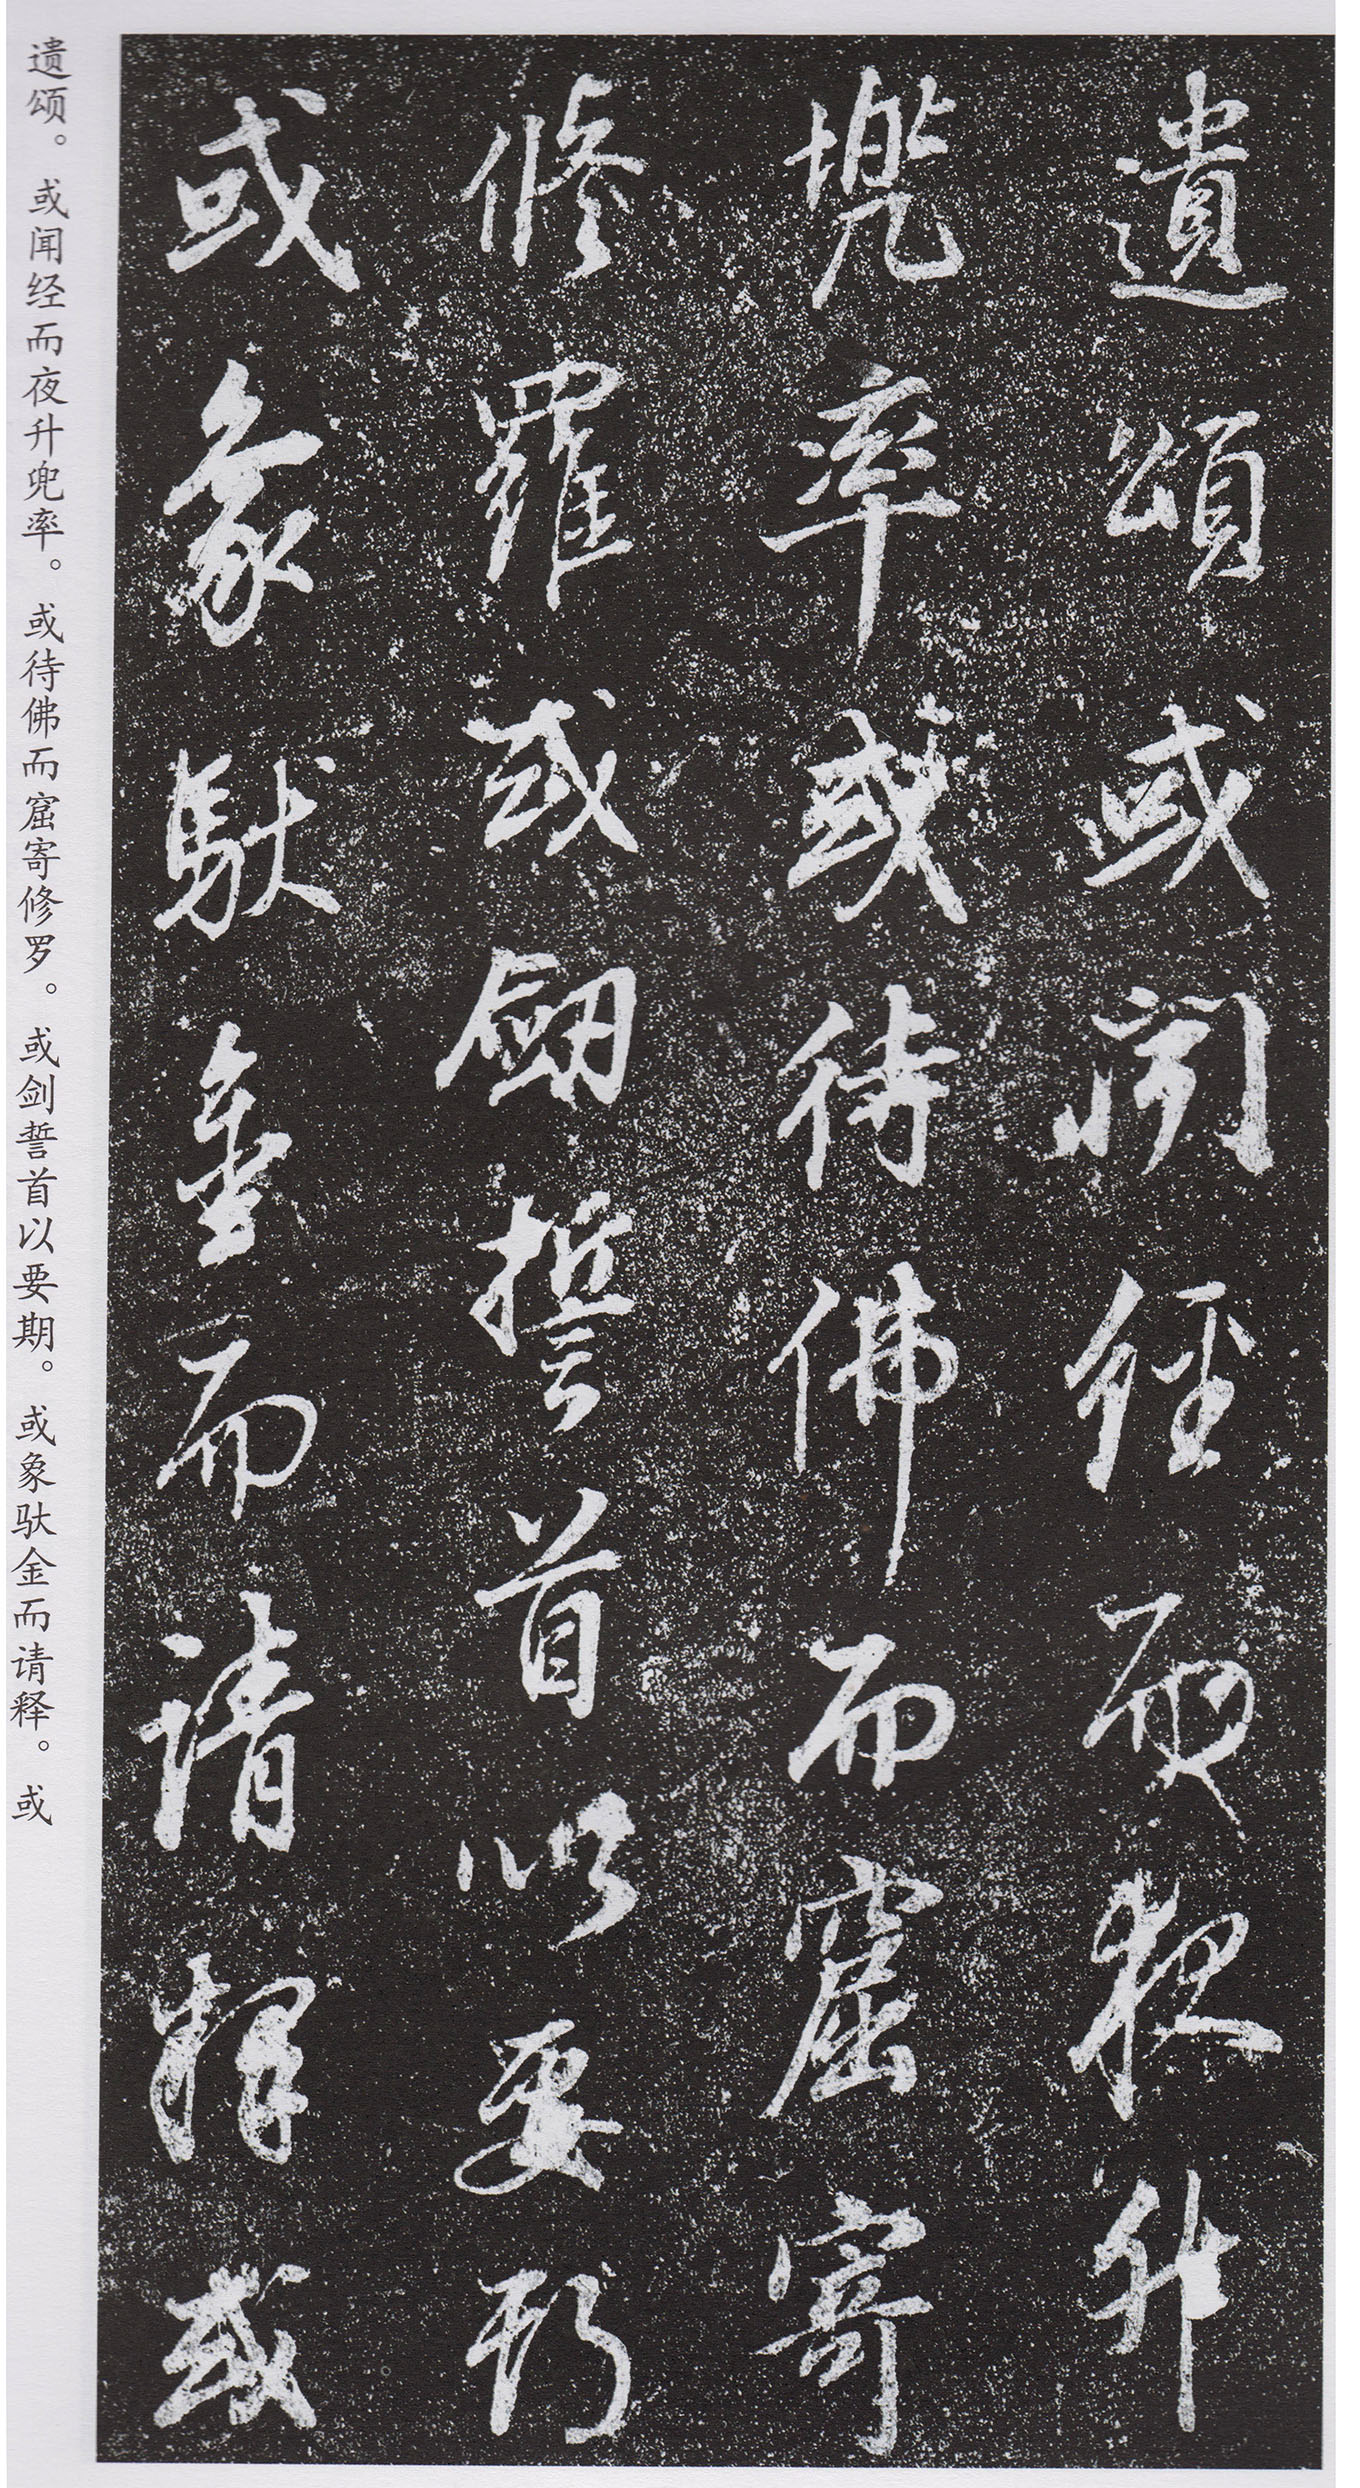 遺頌或聞經而夜升
兜率或待佛而窟寄
修羅或劒誓首以要期
或象馱金而請釋或
遗颂。或闻经而夜升兜率。或待佛而窟寄修罗。或剑誓首以要期。或象驮金而请释。或